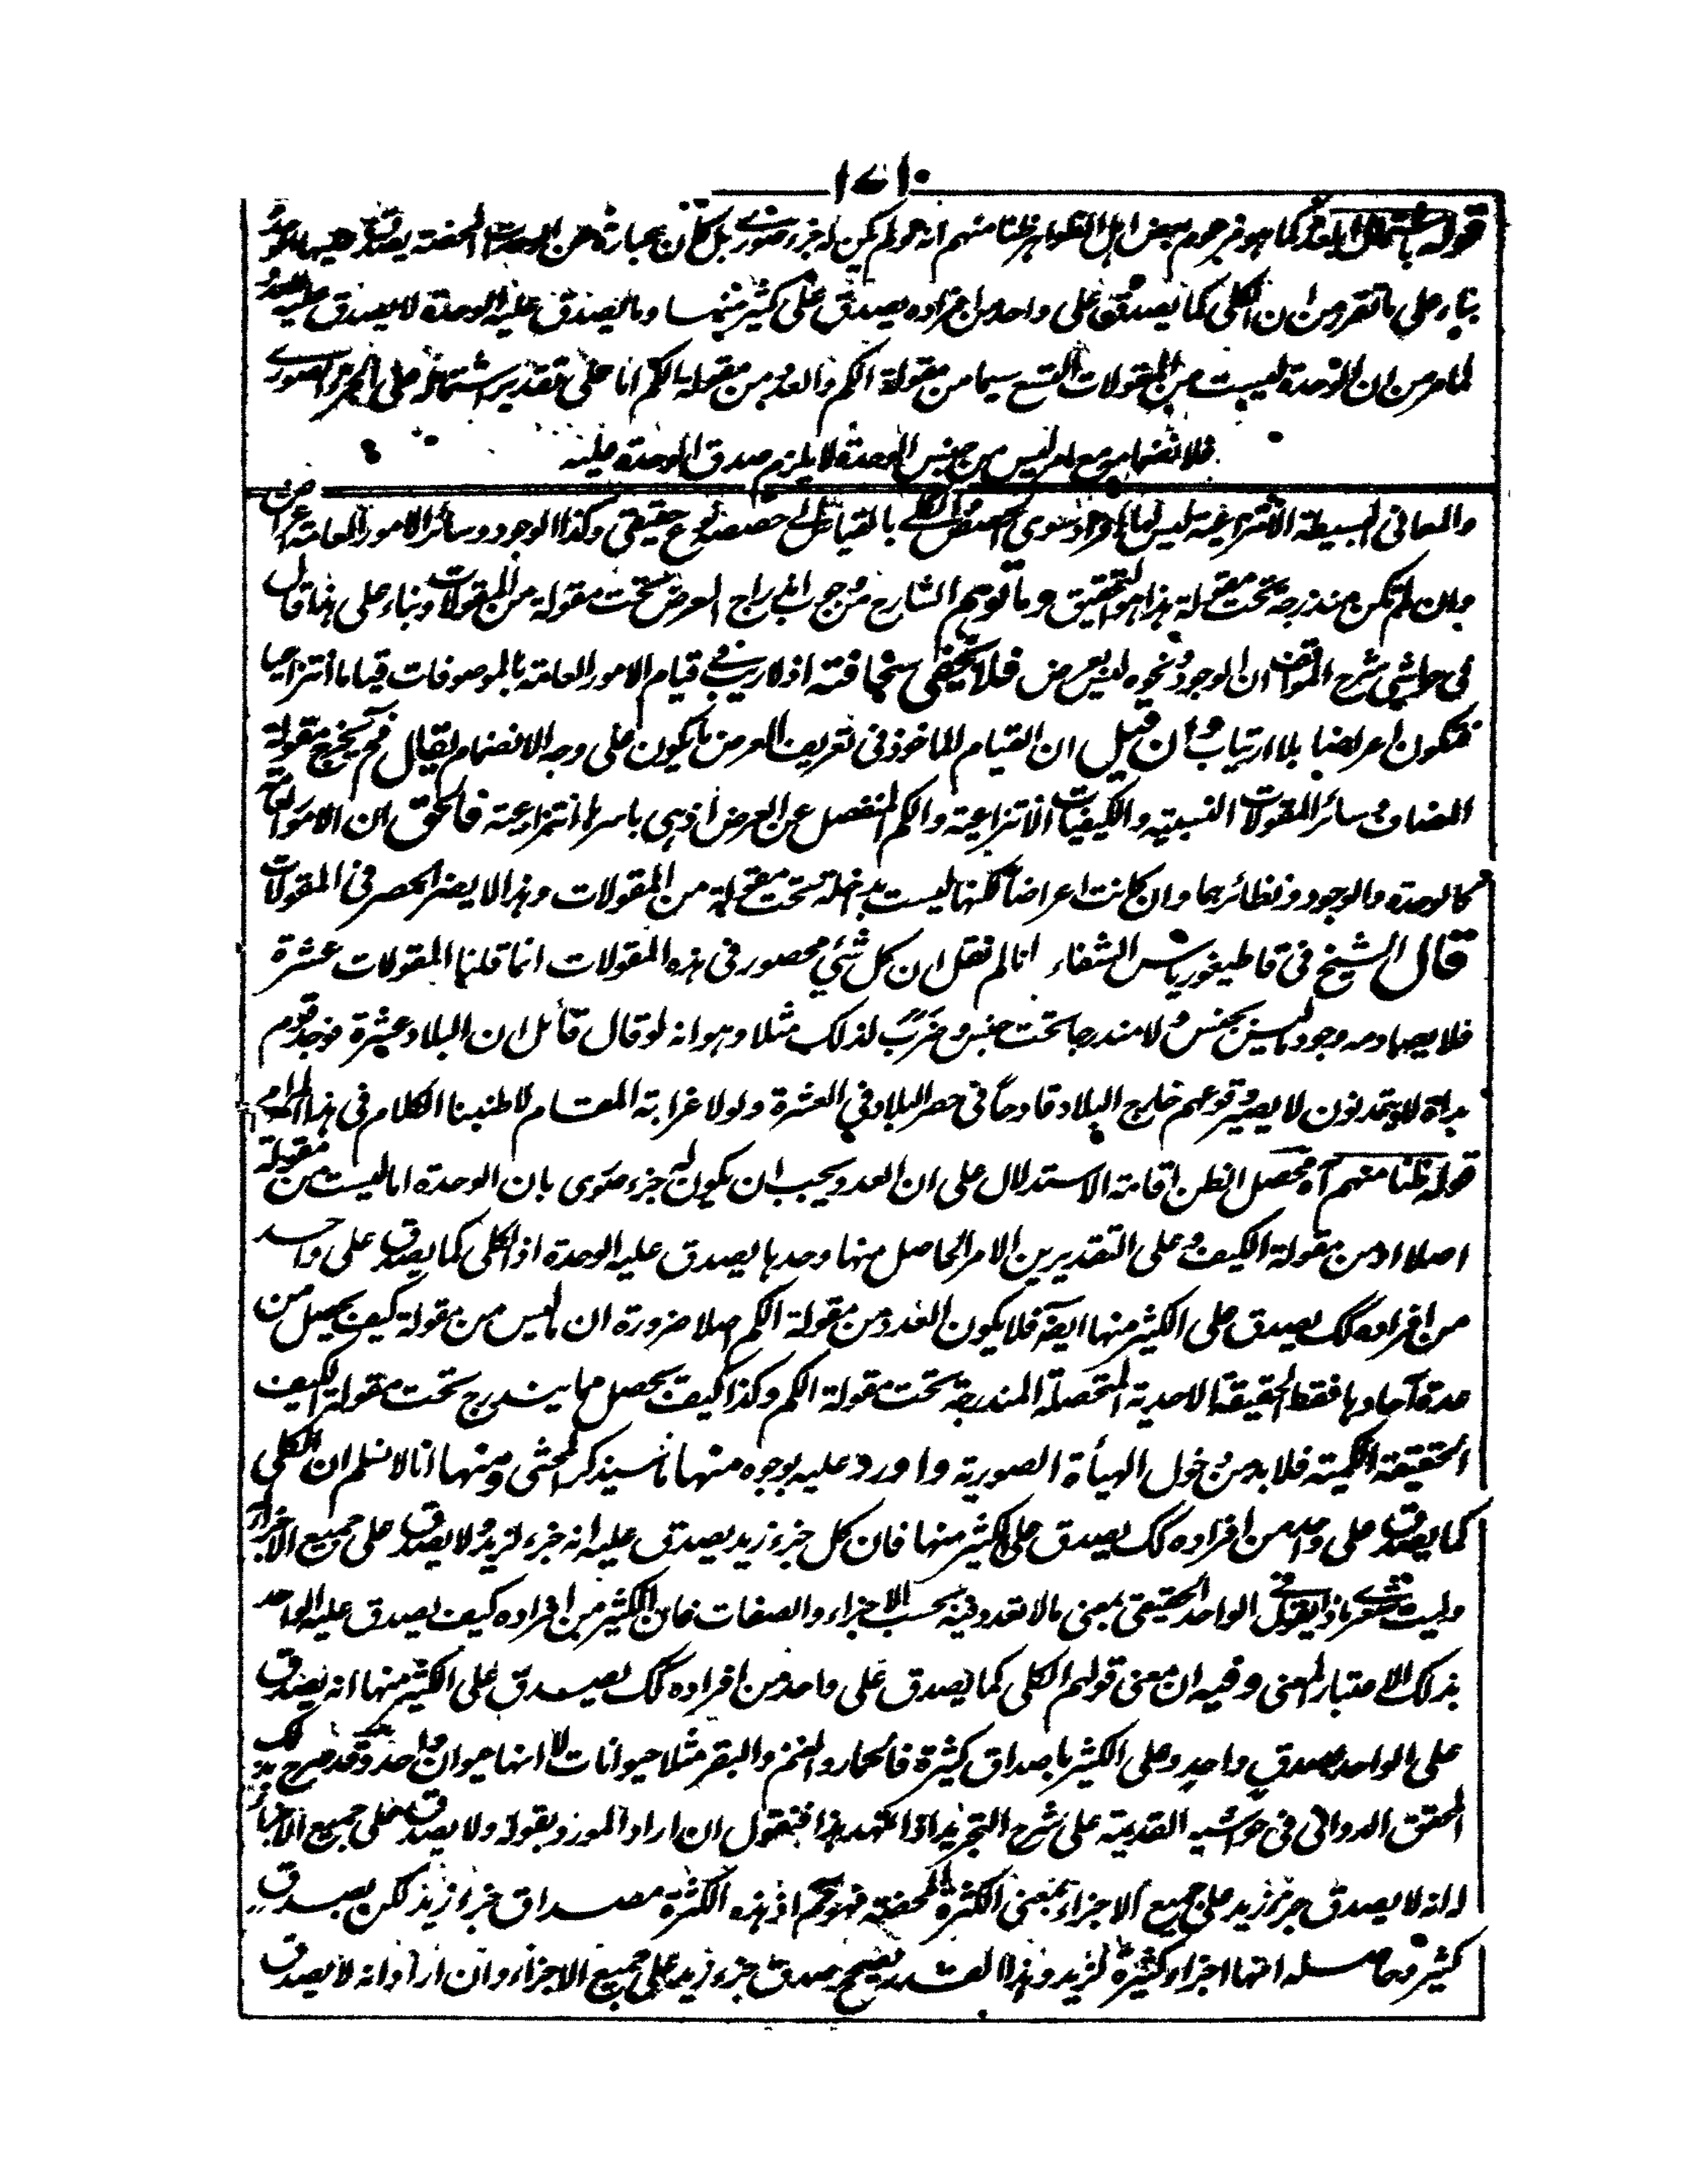 ١٧١
قوله باشتمال العدد كما هو مزعوم بعض اهل النظر ظنا منهم انه لو لم يكن له جزء صوري بل كان عبارة عن الوحدات المحضة يصدق عليها الوحدة
بناء على ما تقرر من ان الكلي كما يصدق على واحد من افراده يصدق على كثير منها وما يصدق عليه الوحدة لا يصدق عليه العدد
لما مر من ان الوحدة ليست من المقولات التسع سيما من مقولة الكم والعدد من مقولة الكم اما على تقدير اشتماله على الجزء الصوري
فلانضمامه مع امر ليس من جنس الوحدة لا يلزم صدق الوحدة عليه
والمعاني البسيطة الانتزاعية ليس لها افراد سوى الحصص بالقياس الى حصصه نوع حقيقي وكذا الوجود وسائر الامور العامة اعراض
وان لم تكن مندرجة تحت مقولة هذا هو التحقيق وما توهم الشارح من وجوب اندراج العرض تحت مقولة من المقولات وبناء على هذا قال
في حواشي شرح المواقف ان الوجود ونحوه ليس بعرض فلا يخفى سخافته اذ لا ريب في قيام الامور العامة بالموصوفات قياما انتزاعيا
فتكون اعراضا بلا ارتياب وان قيل ان القيام الماخوذ في تعريف العرض ما يكون على وجه الانضمام يقال فح يخرج مقولة
المضاف وسائر المقولات النسبية والكيفيات الانتزاعية والكم المنفصل عن العرض اذ هي باسرها انتزاعية فالحق ان الامور العامة
كالوحدة والوجود ونظائرهما وان كانت اعراضا لكنها ليست بداخلة تحت مقولة من المقولات وهذا لا يضر الحصر في المقولات
قال الشيخ في قاطيغورياس الشفاء انا لم نقل ان كل شئ محصور في هذه المقولات انما قلنا المقولات عشرة
فلا يصادمه وجود ما ليس بجنس ولا مندرجا تحت جنس وضرب لذلك مثلا وهو انه لو قال قائل ان البلاد عشرة فوجد قوم
بداة لا يتمدنون لا يصير وقوعهم خارج البلاد قادحا في حصر البلاد في العشرة ولولا غرابة المقام لاطنبنا الكلام في هذا المرام
قوله ظنا منهم آه محصل الظن اقامة الاستدلال على ان العدد يجب ان يكون له جزء صوري بان الوحدة اما ليست من مقولة
اصلا او من مقولة الكيف وعلى التقديرين الامر الحاصل منها وحدها يصدق عليه الوحدة اذ الكلي كما يصدق على واحد
من افراده كك يصدق على الكثير منها ايضا فلا يكون العدد من مقولة الكم اصلا ضرورة ان ما ليس من مقولة كيف يحصل من
عدة آحادها فقط الحقيقة الاحدية المتحصلة المندرجة تحت مقولة الكم وكذا كيف يحصل مما يندرج تحت مقولة الكيف
الحقيقة الكمية فلا بد من دخول الهيأة الصورية واورد عليه بوجوه منها ما سيذكر المحشي ومنها انا لا نسلم ان الكلي
كما يصدق على واحد من افراده كك يصدق على الكثير منها فان كل جزء زيد يصدق عليه انه جزء لزيد ولا يصدق على جميع الاجزاء
وليت شعري ماذا يقول في الواحد الحقيقي بمعنى ما لا تعدد فيه بحسب الاجزاء والصفات فان الكثير من افراده كيف يصدق عليه الواحد
بذلك الاعتبار المعنى وفيه ان معنى قولهم الكلي كما يصدق على واحد من افراده كك يصدق على الكثير منها انه يصدق
على الواحد بصدق واحد وعلى الكثير باصداق كثيرة فالحمار والغنم والبقر مثلا حيوانات لا انها حيوان واحد وقد صرح بذلك
المحقق الدواني في حواشيه القديمة على شرح التجريد اذا تمهد هذا فنقول ان اراد المورد بقوله ولا يصدق على جميع الاجزاء
انه لا يصدق جزء زيد على جميع الاجزاء بمعنى الكثرة المحضة فهو مم اذ هذه الكثرة مصداق جزء زيد لكن بصدق
كثير وحاصله انها اجزاء كثيرة لزيد وهذا القدر يصحح صدق جزء زيد على جميع الاجزاء وان اراد انه لا يصدق